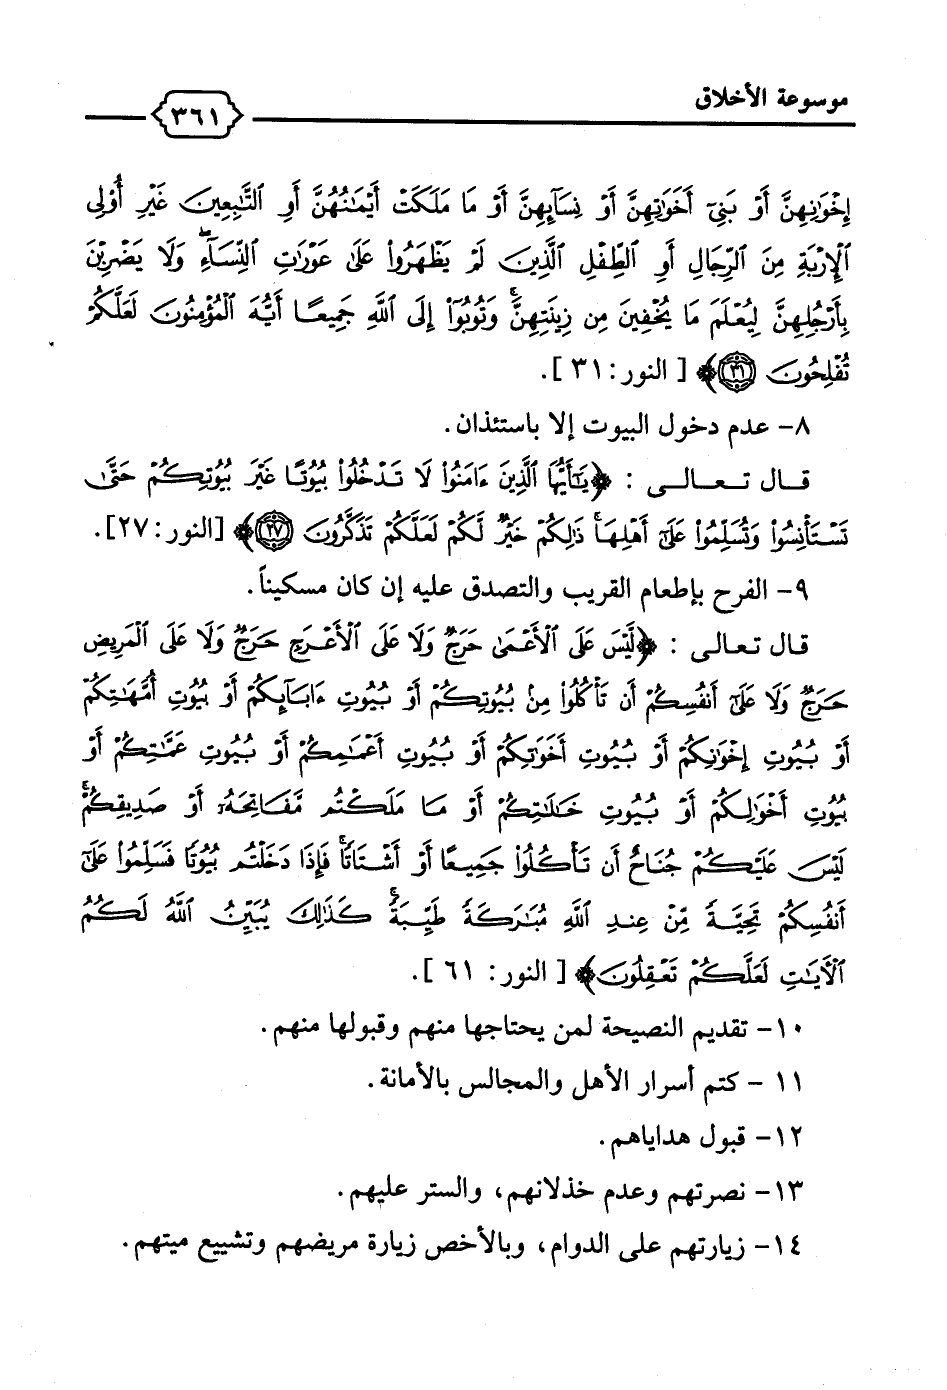 موسوعة الأخلاق
٣٦١
إِخْوَانِهِنَّ أَوْ بَنِي أَخَوَاتِهِنَّ أَوْ نِسَائِهِنَّ أَوْ مَا مَلَكَتْ أَيْمَانُهُنَّ أَوِ التَّابِعِينَ غَيْرِ أُوْلِي
الْإِرْبَةِ مِنَ الرِّجَالِ أَوِ الطِّفْلِ الَّذِينَ لَمْ يَظْهَرُوا عَلَى عَوْرَاتِ النِّسَاءِ وَلَا يَضْرِبْنَ
بِأَرْجُلِهِنَّ لِيُعْلَمَ مَا يُخْفِينَ مِن زِينَتِهِنَّ وَتُوبُوا إِلَى اللَّهِ جَمِيعًا أَيُّهَ الْمُؤْمِنُونَ لَعَلَّكُمْ
تُفْلِحُونَ ٣١﴾ [ النور: ٣١ ].
٨- عدم دخول البيوت إلا باستئذان.
قال تعالى : ﴿يَاأَيُّهَا الَّذِينَ ءَامَنُوا لَا تَدْخُلُوا بُيُوتًا غَيْرَ بُيُوتِكُمْ حَتَّى
تَسْتَأْنِسُوا وَتُسَلِّمُوا عَلَى أَهْلِهَا ذَالِكُمْ خَيْرٌ لَّكُمْ لَعَلَّكُمْ تَذَكَّرُونَ ٢٧﴾ [النور: ٢٧].
٩- الفرح بإطعام القريب والتصدق عليه إن كان مسكيناً.
قال تعالى : ﴿لَّيْسَ عَلَى الْأَعْمَى حَرَجٌ وَلَا عَلَى الْأَعْرَجِ حَرَجٌ وَلَا عَلَى الْمَرِيضِ
حَرَجٌ وَلَا عَلَى أَنفُسِكُمْ أَن تَأْكُلُوا مِنْ بُيُوتِكُمْ أَوْ بُيُوتِ ءَابَائِكُمْ أَوْ بُيُوتِ أُمَّهَاتِكُمْ
أَوْ بُيُوتِ إِخْوَانِكُمْ أَوْ بُيُوتِ أَخَوَاتِكُمْ أَوْ بُيُوتِ أَعْمَامِكُمْ أَوْ بُيُوتِ عَمَّاتِكُمْ أَوْ
بُيُوتِ أَخْوَالِكُمْ أَوْ بُيُوتِ خَالَاتِكُمْ أَوْ مَا مَلَكْتُم مَّفَاتِحَهُ أَوْ صَدِيقِكُمْ
لَيْسَ عَلَيْكُمْ جُنَاحٌ أَن تَأْكُلُوا جَمِيعًا أَوْ أَشْتَاتًا فَإِذَا دَخَلْتُم بُيُوتًا فَسَلِّمُوا عَلَى
أَنفُسِكُمْ تَحِيَّةً مِّنْ عِندِ اللَّهِ مُبَارَكَةً طَيِّبَةً كَذَالِكَ يُبَيِّنُ اللَّهُ لَكُمُ
الْآيَاتِ لَعَلَّكُمْ تَعْقِلُونَ﴾ [ النور: ٦١ ].
١٠- تقديم النصيحة لمن يحتاجها منهم وقبولها منهم.
١١ - كتم أسرار الأهل والمجالس بالأمانة.
١٢- قبول هداياهم.
١٣- نصرتهم وعدم خذلانهم، والستر عليهم.
١٤- زيارتهم على الدوام، وبالأخص زيارة مريضهم وتشييع ميتهم.